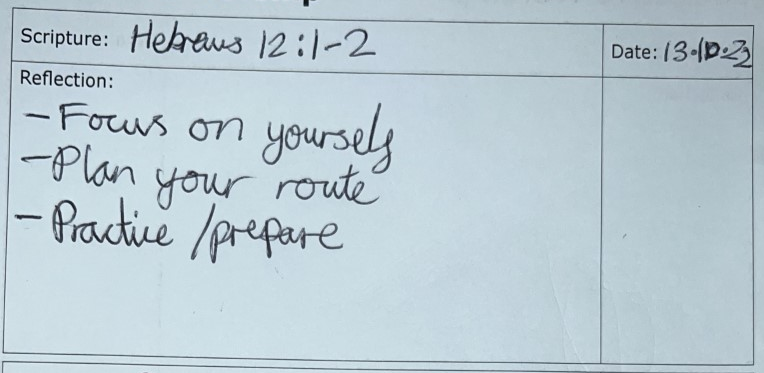 Scripture: Hebrews 12:1-2
Date: 13.10.22
Reflection:
- Focus on yourself
- Plan your route
- Practice / prepare